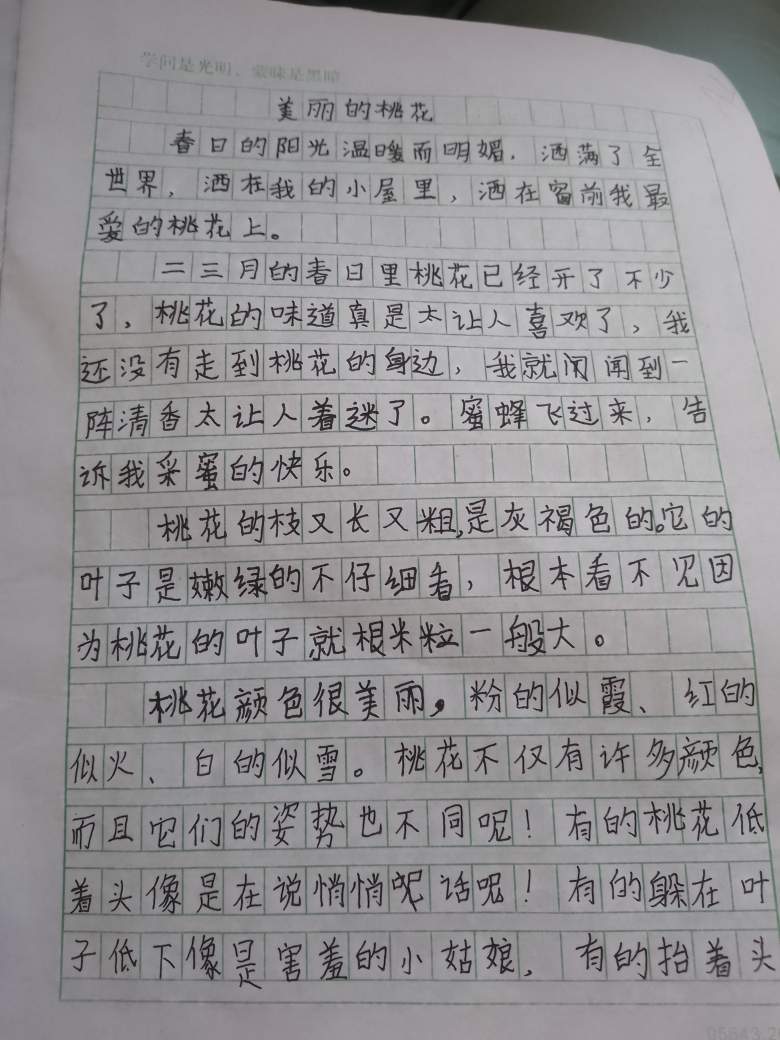 学问是光明，蒙昧是黑暗
美丽的桃花
春日的阳光温暖而明媚，洒满了全
世界，洒在我的小屋里，洒在窗前我最
爱的桃花上。
二三月的春日里桃花已经开了不少
了，桃花的味道真是太让人喜欢了，我
还没有走到桃花的身边，我就闪闻到一
阵清香太让人着迷了。蜜蜂飞过来，告
诉我采蜜的快乐。
桃花的枝又长又粗,是灰褐色的。它的
叶子是嫩绿的不仔细看，根本看不见因
为桃花的叶子就根米粒一般大。
桃花颜色很美丽，粉的似霞、红的
似火、白的似雪。桃花不仅有许多颜色,
而且它们的姿势也不同呢！有的桃花低
着头像是在说悄悄呢话呢！有的躲在叶
子低下像是害羞的小姑娘，有的抬着头